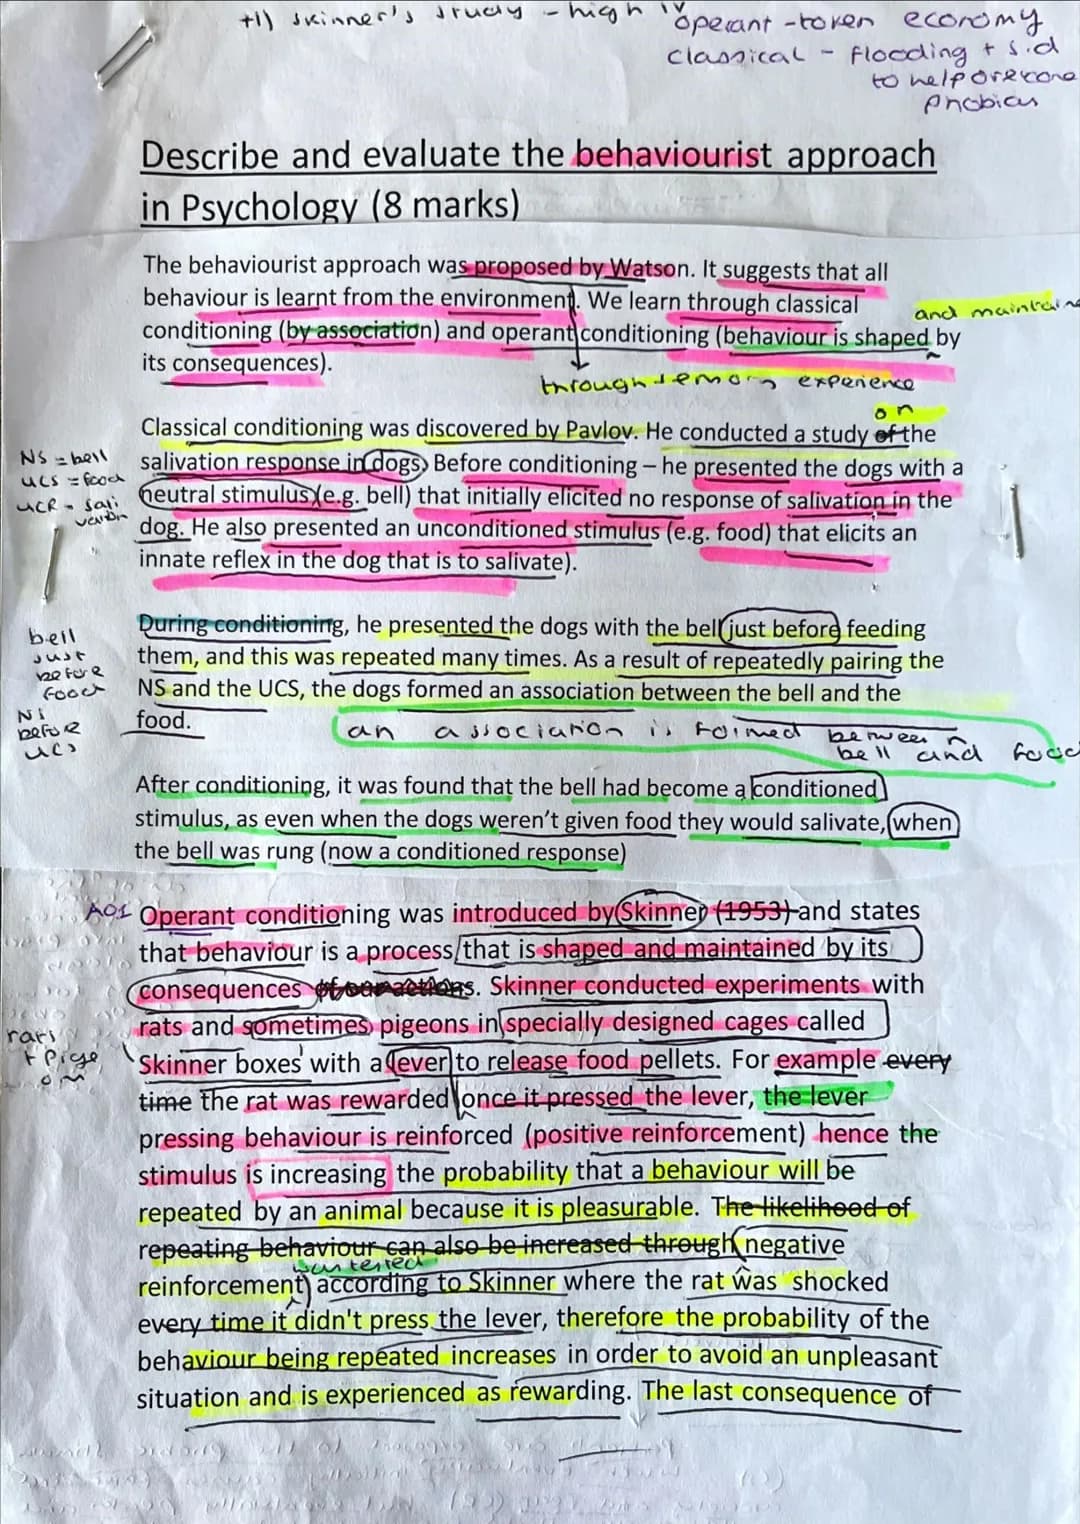 +1) Skinner's study - high IV
operant - token economy
classical - flooding + s.d
to help overcome
phobias
Describe and evaluate the behaviourist approach
in Psychology (8 marks)
The behaviourist approach was proposed by Watson. It suggests that all
behaviour is learnt from the environment. We learn through classical
and maintained
conditioning (by association) and operant conditioning (behaviour is shaped by
its consequences).
through sensory experience
on
Classical conditioning was discovered by Pavlov. He conducted a study of the
salivation response in dogs. Before conditioning – he presented the dogs with a
neutral stimulus (e.g. bell) that initially elicited no response of salivation in the
dog. He also presented an unconditioned stimulus (e.g. food) that elicits an
innate reflex in the dog that is to salivate).
NS = bell
UCS = food
UCR - sali
vation
During conditioning, he presented the dogs with the bell just before feeding
them, and this was repeated many times. As a result of repeatedly pairing the
NS and the UCS, the dogs formed an association between the bell and the
food.
an association is formed between
bell and food
bell
just
before
food
NS
before
UCS
After conditioning, it was found that the bell had become a conditioned
stimulus, as even when the dogs weren't given food they would salivate, when
the bell was rung (now a conditioned response)
AO1
Operant conditioning was introduced by Skinner (1953) and states
that behaviour is a process that is shaped and maintained by its
consequences of our actions. Skinner conducted experiments with
rats and sometimes pigeons in specially designed cages called
Skinner boxes with a lever to release food pellets. For example every
time the rat was rewarded once it pressed the lever, the lever
pressing behaviour is reinforced (positive reinforcement) hence the
stimulus is increasing the probability that a behaviour will be
repeated by an animal because it is pleasurable. The likelihood of
repeating behaviour can also be increased through negative
was tested
reinforcement) according to Skinner where the rat was shocked
every time it didn't press the lever, therefore the probability of the
behaviour being repeated increases in order to avoid an unpleasant
situation and is experienced as rewarding. The last consequence of
rats
+ pige
on